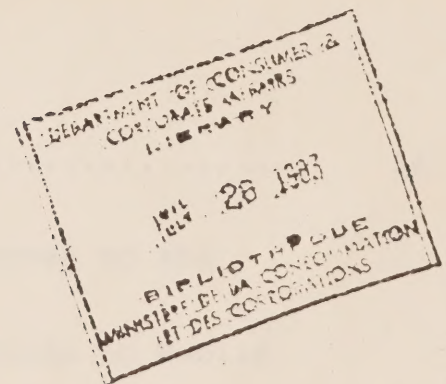 DEPARTMENT OF CONSUMER &
CORPORATE AFFAIRS
LIBRARY
JUIL 28 1983
JULY
BIBLIOTHEQUE
MINISTÈRE DE LA CONSOMMATION
ET DES CORPORATIONS